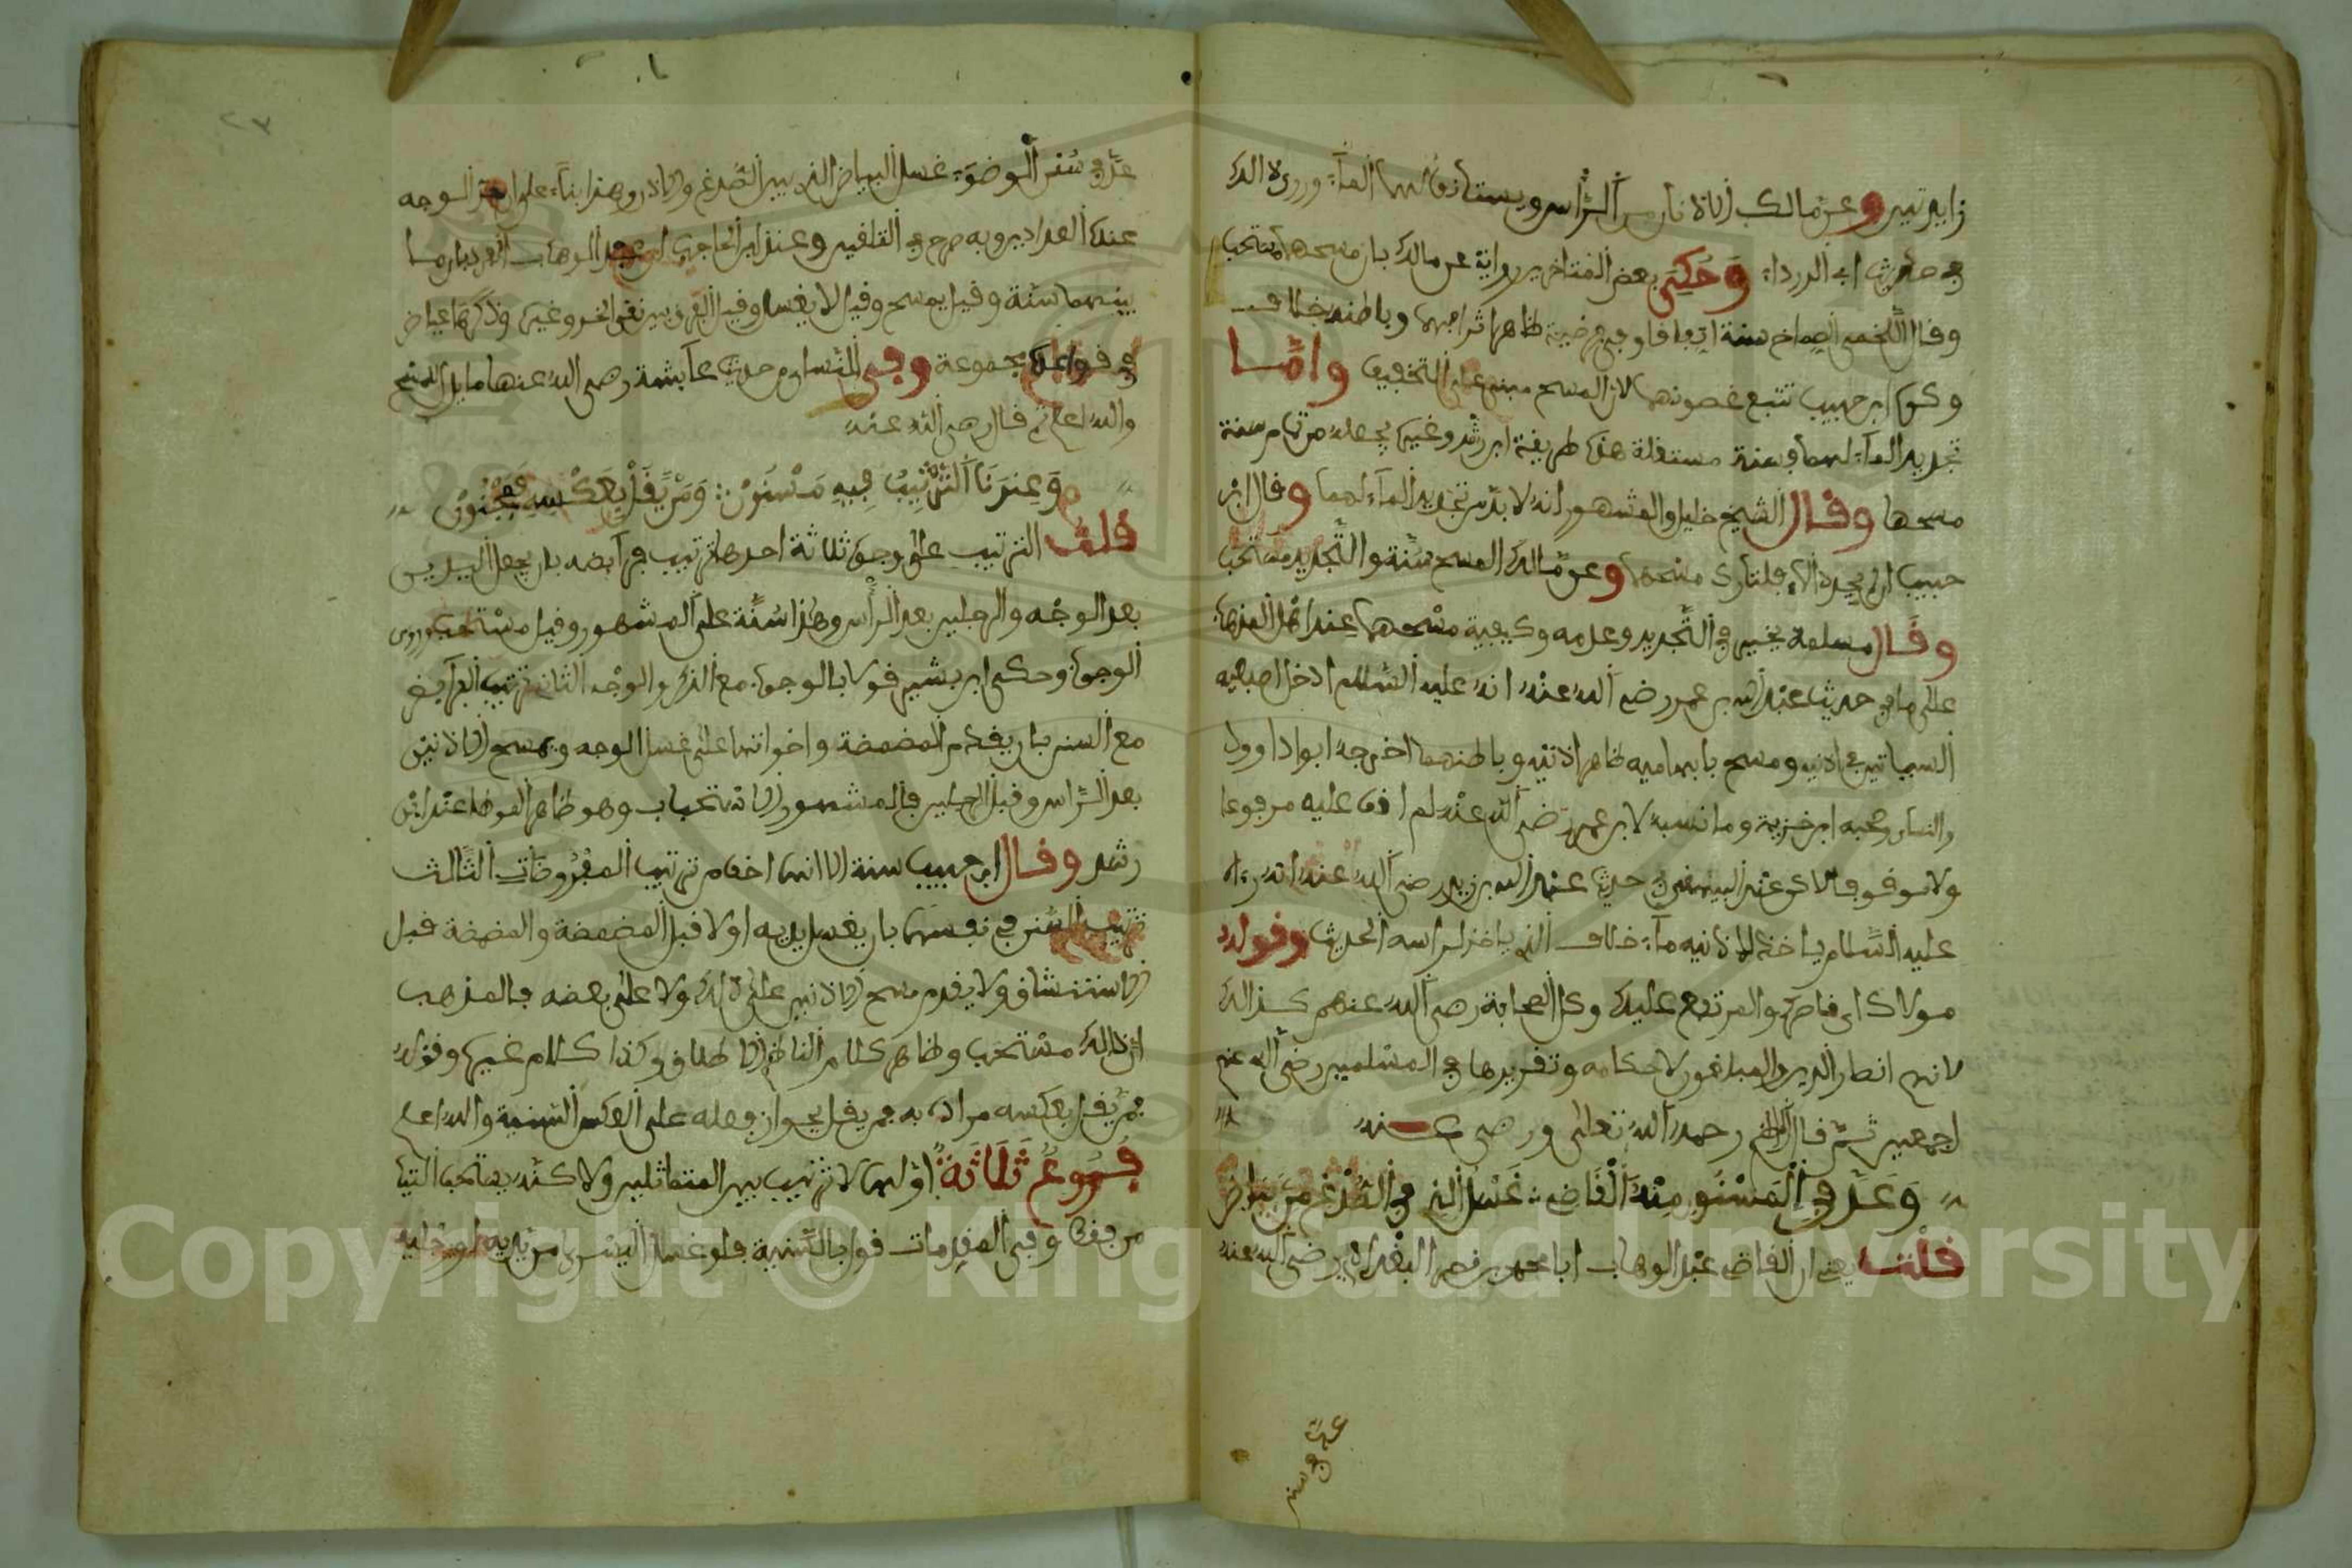 زايدتين وعن مالك الاذنان من الرأس ويستانف لهما الماء وروي ذلك
في حديث ابي الدرداء وحكى بعض المتاخرين رواية عن مالك بان مسحهما مستحب
وقال اللخمي الصماخ سنة اتفاقا وفي فرضية ظاهر اشرافهما وباطنه خلاف
وكره ابن حبيب تتبع غضونهما لان المسح مبني على التخفيف واما
تجديد الماء لهما فسنة مستقلة هذه طريقة ابن رشد وغيره يجعله من تمام سنة
مسحها وقال الشيخ خليل والمشهور انه لا بد من تجديد الماء لهما وقال ابن
حبيب ان لم يجدد الماء فكتارك مسحهما وعن مالك المسح سنة والتجديد مستحب
وقال مسلمة يخير في التجديد وعدمه وكيفية مسحهما عند اهل المذهب
على ما في حديث عبد الله بن عمر رضي الله عنه انه عليه السلام ادخل اصبعيه
السباتين في اذنيه ومسح بابهاميه ظاهر اذنيه وباطنهما اخرجه ابو داوود
والنساي وصححه ابن خزيمة وما نسبه لابن عمر رضي الله عنه لم اقف عليه مرفوعا
ولا موقوفا لاكن عند البيهقي في حديث عبد الله بن زيد رضي الله عنه انه رءاه
عليه السلام ياخذ لاذنيه ماء خلاف الذي ياخذ لراسه الحديث وقوله
مولاك اي ناصرك والمرتفع عليك وكل الصحابة رضي الله عنهم كذالك
لانهم انصار الدين والمبلغون لاحكامه وتقريرها في المسلمين رضي الله عنهم
اجمعين ثم قال الناظم رحمه الله تعالى ورضي عنه
وعد في المسنون منه القاضي غسل الذي في الصدغ من بياض
قلت يعني ان القاضي عبد الوهاب ابا محمد بن نصر البغدادي رضي الله عنه
عد في سنن
عد في سنن الوضوء غسل البياض الذي بين الصدغ والاذن وهذا بناء على ان حد الوجه
عنده العذارين وبه صرح في التلقين وعند ابن الحاجب عبد الوهاب انفرد بان ما
بينهما سنة وقيل يمسح وقيل لا يغسل وقيل الفرق بين نقي الخد وغيره وذكرها عياض
في قواعده مجموعة وفي النساي من حديث عايشة رضي الله عنها ما يدل للمسح
والله اعلم ثم قال رضي الله عنه
وعندنا الترتيب فيه مسنون ومن يقل بعكسه فمجنون
قلت الترتيب على وجوه ثلاثة احدها ترتيب فرايضه بان يجعل اليدين
بعد الوجه والرجلين بعد الرأس وهذا سنة على المشهور وقيل مستحب وروي
الوجوب وحكى ابن بشير قولا بالوجوب مع الذكر والوجه الثاني ترتيب الفرايض
مع السنن بان يقدم المضمضة واخواتها على غسل الوجه ويمسح الاذنين
بعد الراس وقبل الرجلين فالمشهور الاستحباب وهو ظاهر الموطا عند ابن
رشد وقال ابن حبيب سنة الا انها اخف من ترتيب المفروضات الثالث
ترتيب السنن في نفسها بان يغسل يديه اولا قبل المضمضة والمضمضة قبل
الاستنشاق ولا يقدم مسح الاذنين على ذلك ولا على بعضه فالمذهب
ان ذالك مستحب وظاهر كلام الناظم الاطلاق وكذا كلام غيره وقوله
من يقل بعكسه مراده به من يقل بجواز فعله على العكس للسنية والله اعلم
فروع ثلاثة اولها لا ترتيب بين المتماثلين ولاكنه يستحب التيا
من فقط وفي المقدمات قول بالسنية فلو غسل اليسرى من يديه او رجليه